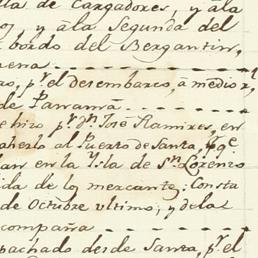 lla de Cargadores, y à la
o, y à la Segunda del
abordo del Bergantin,
uena
ao, pr. el desembarco, à medio r
de Panamà
e hizo pr. Dn. José Ramires, en
aherlo al Puerto de Santa, qe.
lan en la Ysla de Sn. Lorenzo
ida de lo mercante; Consta
de Octubre ultimo; y de la
compaña
pachado desde Santa, pr. el